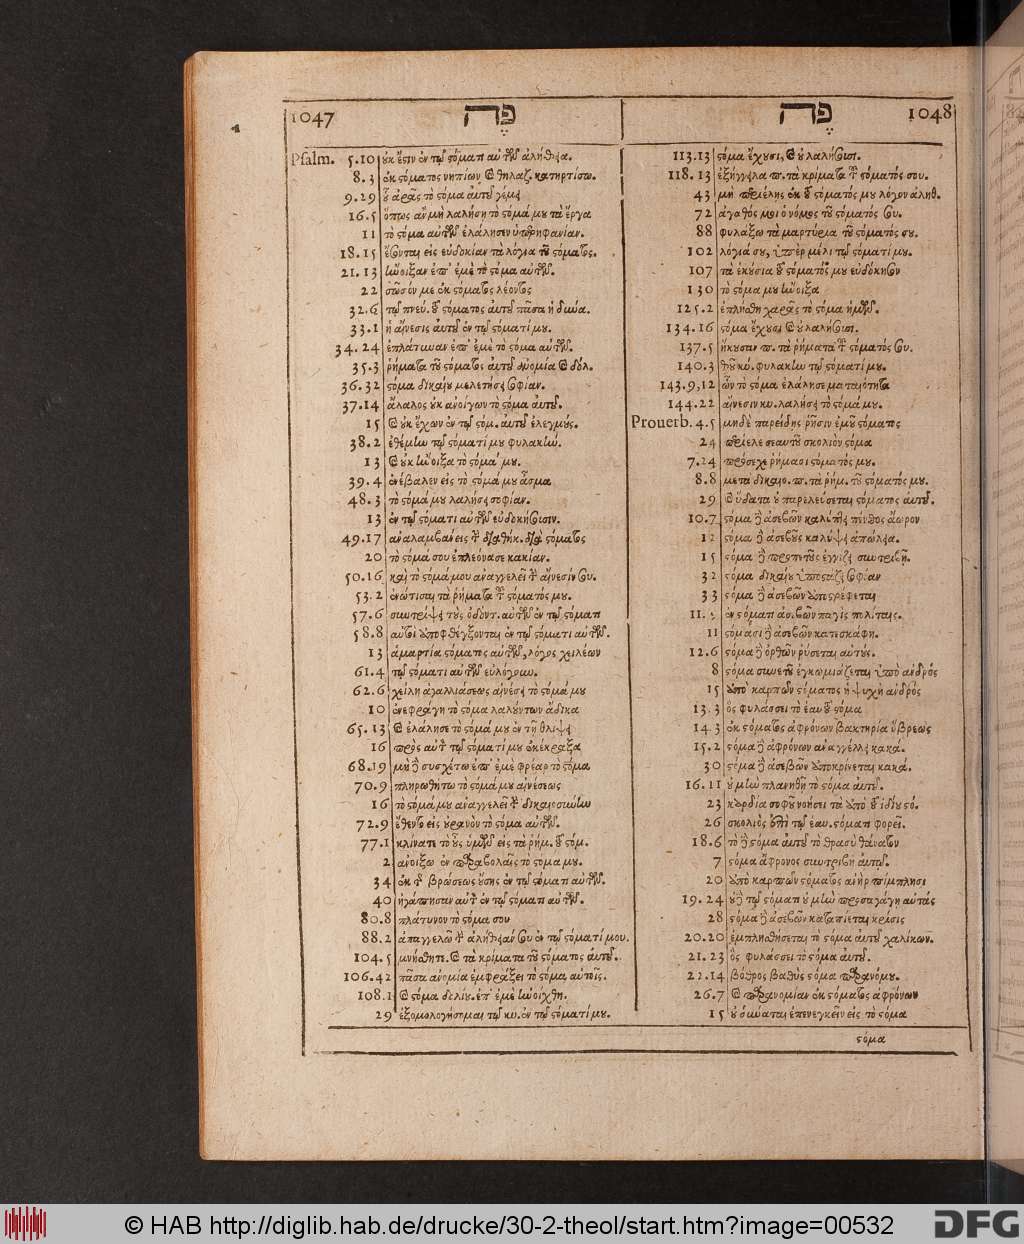 1047 פֶּה
Psalm. 5.10 οὐκ ἔστιν ἐν τῷ στόματι αὐτῶν ἀλήθεια.
8.3 ἐκ στόματος νηπίων καὶ θηλαζ. κατηρτίσω.
9.29 οὗ ἀρᾶς τὸ στόμα αὐτοῦ γέμει
16.5 ὅπως ἂν μὴ λαλήσῃ τὸ στόμά μου τὰ ἔργα
11 τὸ στόμα αὐτῶν ἐλάλησεν ὑπερηφανίαν.
18.15 ἔσονται εἰς εὐδοκίαν τὰ λόγια τοῦ στόματος.
21.13 ἤνοιξαν ἐπ' ἐμὲ τὸ στόμα αὐτῶν.
22 σῶσόν με ἐκ στόματος λέοντος
32.6 τῷ πνεύ. τοῦ στόματος αὐτοῦ πᾶσα ἡ δύνα.
33.1 ἡ αἴνεσις αὐτοῦ ἐν τῷ στόματί μου.
34.24 ἐπλάτυναν ἐπ' ἐμὲ τὸ στόμα αὐτῶν.
35.3 ῥήματα τοῦ στόματος αὐτοῦ ἀνομία καὶ δόλ.
36.32 στόμα δικαίου μελετήσει σοφίαν.
37.14 ἄλαλος οὐκ ἀνοίγων τὸ στόμα αὐτοῦ.
15 καὶ οὐκ ἔχων ἐν τῷ στόμ. αὐτοῦ ἐλεγμούς.
38.2 ἐθέμην τῷ στόματί μου φυλακήν.
13 καὶ οὐκ ἤνοιξα τὸ στόμά μου.
39.4 ἐνέβαλεν εἰς τὸ στόμά μου ἆσμα
48.3 τὸ στόμά μου λαλήσει σοφίαν.
13 ἐν τῷ στόματι αὐτῶν εὐδοκήσουσιν.
49.17 ἀναλαμβάνεις τὴν διαθήκ. διὰ στόματος
20 τὸ στόμά σου ἐπλεόνασε κακίαν.
50.16 καὶ τὸ στόμά μου ἀναγγελεῖ τὴν αἴνεσίν σου.
53.2 ἐνώτισαι τὰ ῥήματα τοῦ στόματός μου.
57.6 συντρίψει τοὺς ὀδόντ. αὐτῶν ἐν τῷ στόματι
58.8 αὐτοὶ ἀποφθέγξονται ἐν τῷ στόματι αὐτῶν.
13 ἁμαρτία στόματος αὐτῶν, λόγος χειλέων
61.4 τῷ στόματι αὐτῶν εὐλόγουν.
62.6 χείλη ἀγαλλιάσεως αἰνέσει τὸ στόμά μου
10 ἐνεφράγη τὸ στόμα λαλούντων ἄδικα
65.13 καὶ ἐλάλησε τὸ στόμά μου ἐν τῇ θλίψει
16 πρὸς αὐτὸν τῷ στόματί μου ἐκέκραξα
68.19 μηδὲ συσχέτω ἐπ' ἐμὲ φρέαρ τὸ στόμα
70.9 πληρωθήτω τὸ στόμά μου αἰνέσεως
16 τὸ στόμά μου ἀναγγελεῖ τὴν δικαιοσύνην
72.9 ἔθεντο εἰς οὐρανὸν τὸ στόμα αὐτῶν.
77.1 κλίνατε τὸ οὖς ὑμῶν εἰς τὰ ῥήμ. τοῦ στόμ.
2 ἀνοίξω ἐν παραβολαῖς τὸ στόμα μου.
34 ἔτι τῆς βρώσεως οὔσης ἐν τῷ στόματι αὐτῶν.
40 ἠγάπησαν αὐτὸν ἐν τῷ στόματι αὐτῶν.
80.8 πλάτυνον τὸ στόμα σου
88.2 ἀπαγγελῶ τὴν ἀλήθειάν σου ἐν τῷ στόματί μου.
104.5 μνήσθητε. καὶ τὰ κρίματα τοῦ στόματος αὐτοῦ.
106.42 πᾶσα ἀνομία ἐμφράξει τὸ στόμα αὐτῆς.
108.1 καὶ στόμα δολίου. ἐπ' ἐμὲ ἠνοίχθη.
29 ἐξομολογήσομαι τῷ κυ. ἐν τῷ στόματί μου.
פֶּה 1048
113.13 στόμα ἔχουσι, καὶ οὐ λαλήσουσι.
118.13 ἐξήγγειλα π. τὰ κρίματα τοῦ στόματός σου.
43 μὴ περιέλῃς ἐκ τοῦ στόματός μου λόγον ἀληθ.
72 ἀγαθός μοι ὁ νόμος τοῦ στόματός σου.
88 φυλάξω τὰ μαρτύρια τοῦ στόματός σου.
102 λόγιά σου, ὑπὲρ μέλι τῷ στόματί μου.
107 τὰ ἑκούσια τοῦ στόματός μου εὐδόκησον
130 τὸ στόμα μου ἤνοιξα
125.2 ἐπλήσθη χαρᾶς τὸ στόμα ἡμῶν.
134.16 στόμα ἔχουσι καὶ οὐ λαλήσουσι.
137.5 ἤκουσαν π. τὰ ῥήματα τοῦ στόματός σου.
140.3 θοῦ κύ. φυλακὴν τῷ στόματί μου.
143.9,12 ὧν τὸ στόμα ἐλάλησε ματαιότητα
144.22 αἴνεσιν κυ. λαλήσει τὸ στόμά μου.
Prouerb. 4.5 μηδὲ παρείδῃς ῥῆσιν ἐμοῦ στόματος
24 περίελε σεαυτοῦ σκολιὸν στόμα
7.24 πρόσεχε ῥήμασι στόματός μου.
8.8 μετὰ δικαιο. π. τὰ ῥήμ. τοῦ στόματός μου.
29 καὶ ὕδατα οὐ παρελεύσεται στόματος αὐτοῦ.
10.7 στόμα δὲ ἀσεβῶν καλύπτει πένθος ἄωρον
12 στόμα δὲ ἀσεβοῦς καλύψει ἀπώλεια.
15 στόμα δὲ προπετοῦς ἐγγίζει συντριβῇ.
32 στόμα δικαίου ἀποστάζει σοφίαν
33 στόμα δὲ ἀσεβῶν ἀποστρέφεται
ἐν στόματι ἀσεβῶν παγὶς πολίταις.
11 στόμασι δὲ ἀσεβῶν κατεσκάφη.
12.6 στόμα δὲ ὀρθῶν ῥύσεται αὐτούς.
8 στόμα συνετοῦ ἐγκωμιάζεται ὑπὸ ἀνδρός
15 ἀπὸ καρπῶν στόματος ἡ ψυχὴ ἀνδρός
13.3 ὃς φυλάσσει τὸ ἑαυτοῦ στόμα
14.3 ἐκ στόματος ἀφρόνων βακτηρία ὕβρεως
15.2 στόμα δὲ ἀφρόνων ἀναγγέλλει κακά.
30 στόμα δὲ ἀσεβῶν ἀποκρίνεται κακά.
16.11 οὐ μὴ πλανηθῇ τὸ στόμα αὐτοῦ.
23 καρδία σοφοῦ νοήσει τὰ ἀπὸ τοῦ ἰδίου στό.
26 σκολιὸς ἐπὶ τῷ ἑαυ. στόματι φορεῖ.
18.6 τὸ δὲ στόμα αὐτοῦ τὸ θρασὺ θάνατον
7 στόμα ἄφρονος συντριβὴ αὐτῷ.
20 ἀπὸ καρπῶν στόματος ἀνὴρ πίμπλησι
19.24 οὐδὲ τῷ στόματι οὐ μὴ προσαγάγῃ αὐτάς
28 στόμα δὲ ἀσεβῶν καταπίεται κρίσις
20.20 ἐμπλησθήσεται τὸ στόμα αὐτοῦ χαλίκων.
21.23 ὃς φυλάσσει τὸ στόμα αὐτοῦ.
22.14 βόθρος βαθὺς στόμα παρανόμου.
26.7 καὶ παρανομίαν ἐκ στόματος ἀφρόνων
15 οὐ δύναται ἐπενεγκεῖν εἰς τὸ στόμα
στόμα
© HAB http://diglib.hab.de/drucke/30-2-theol/start.htm?image=00532
DFG